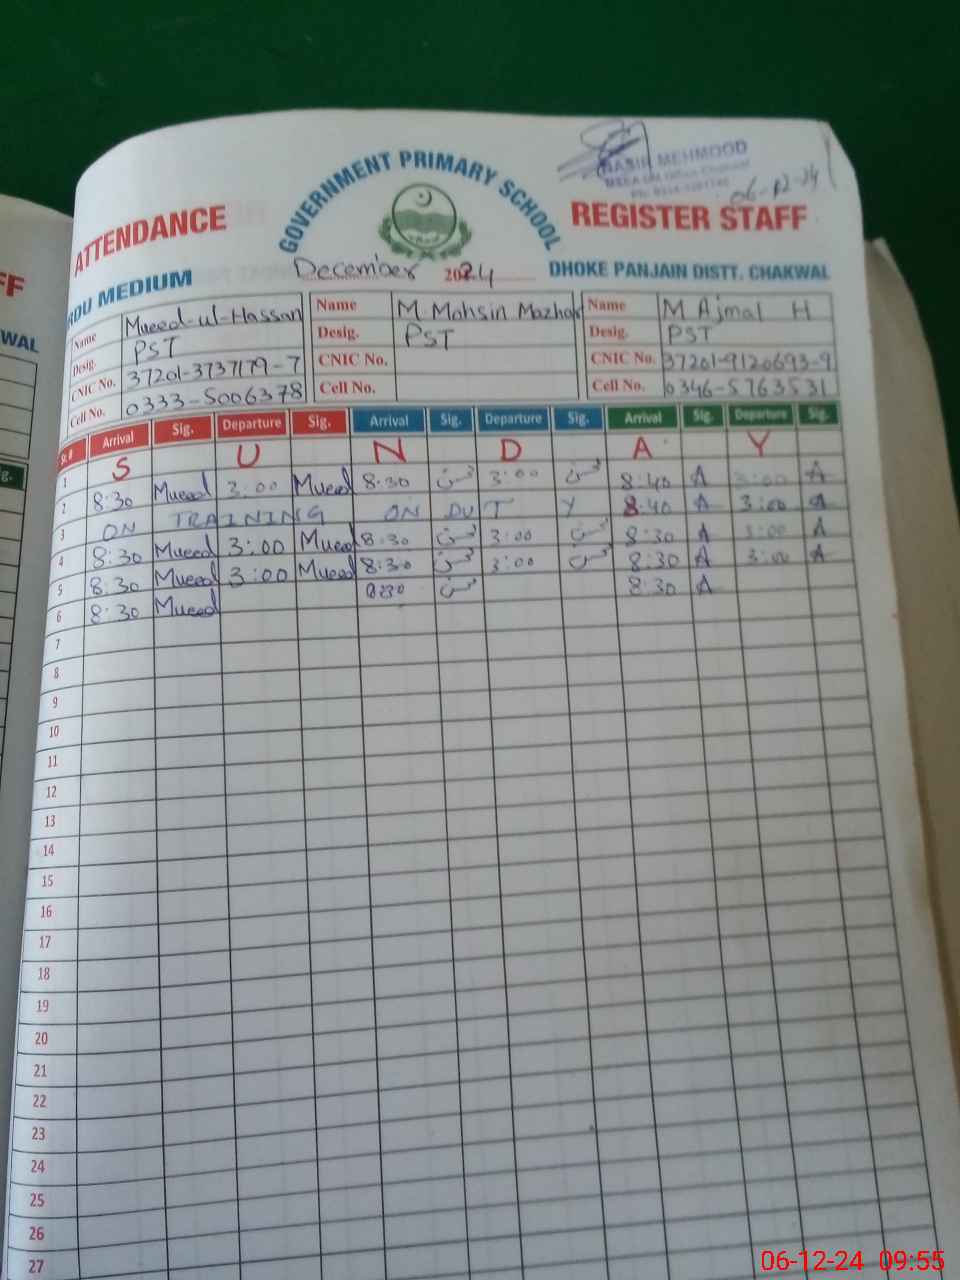 NASIR MEHMOOD
06-12-24
GOVERNMENT PRIMARY SCHOOL
ATTENDANCE
REGISTER STAFF
URDU MEDIUM
December 2024
DHOKE PANJAIN DISTT. CHAKWAL
FF
WAL
Name Mueed-ul-Hassan Name M. Mohsin Mazhar Name M Ajmal H
Desig. PST Desig. PST Desig. PST
CNIC No. 37201-3737179-7 CNIC No. CNIC No. 37201-9120693-9
Cell No. 0333-5006378 Cell No. Cell No. 0346-5763531
Sr.# Arrival Sig. Departure Sig. Arrival Sig. Departure Sig. Arrival Sig. Departure Sig.
1 S U N D A Y
2 8:30 Mueed 3:00 Mueed 8:30 3:00 8:40 A 3:00 A
3 ON TRAINING ON DUTY 8:40 A 3:00 A
4 8:30 Mueed 3:00 Mueed 8:30 3:00 8:30 A 3:00 A
5 8:30 Mueed 3:00 Mueed 8:30 3:00 8:30 A 3:00 A
6 8:30 Mueed 0830 8:30 A
7
8
9
10
11
12
13
14
15
16
17
18
19
20
21
22
23
24
25
26
27
06-12-24 09:55